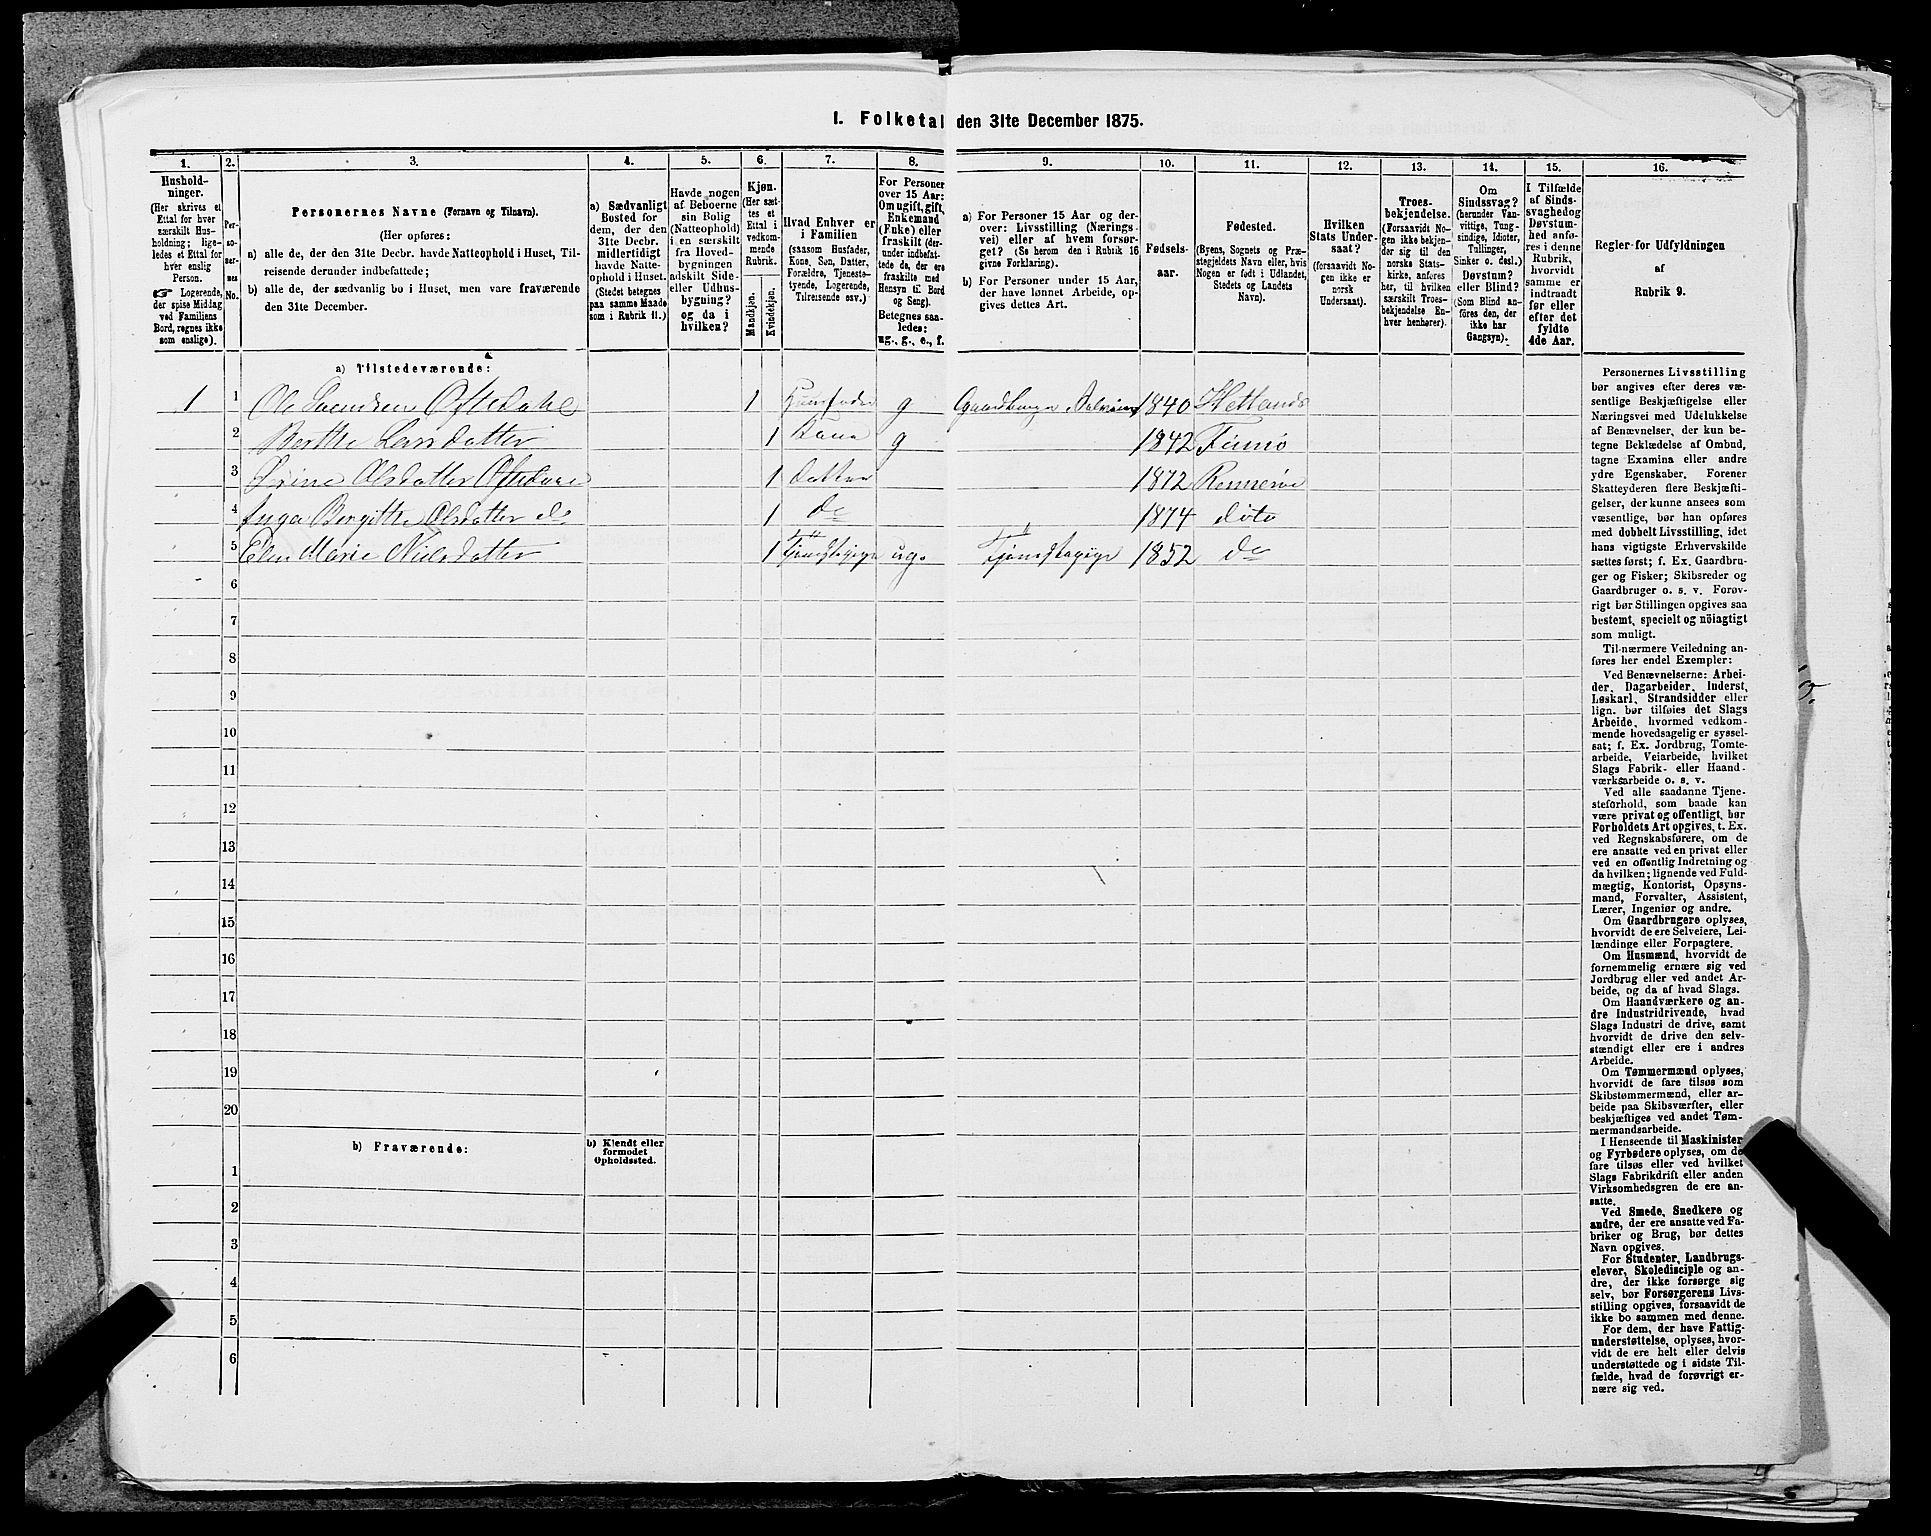 I. Folketal den 31te December 1875.
1. 2. 3. 4. 5. 6. 7. 8. 9. 10. 11. 12. 13. 14. 15. 16.
Hushold-
ninger.
(Her skrives et
Ettal for hver
særskilt Hus-
holdning; lige-
ledes et Ettal for
hver enslig
Person.
☞ Logerende,
der spise Middag
ved Familiens
Bord, regnes ikke
som enslige).
Per-
so-
ner-
nes
No.
Personernes Navne (Fornavn og Tilnavn).
(Her opføres:
a) alle de, der den 31te Decbr. havde Natteophold i Huset, Til-
reisende derunder indbefattede;
b) alle de, der sædvanlig bo i Huset, men vare fraværende
den 31te December.
a) Sædvanligt
Bosted for
dem, der den
31te Decbr.
midlertidigt
havde Natte-
ophold i Huset.
(Stedet betegnes
paa samme Maade
som i Rubrik 11.)
Havde nogen
af Beboerne
sin Bolig
(Natteophold)
i en særskilt
fra Hoved-
bygningen
adskilt Side-
eller Udhus-
bygning?
og da i
hvilken?
Kjøn.
(Her sæt-
tes et
Ettal i
vedkom-
mende
Rubrik.
Mandkjøn.
Kvindekjøn.
Hvad Enhver er
i Familien
(saasom Husfader,
Kone, Søn, Datter,
Forældre, Tjeneste-
tyende, Logerende,
Tilreisende osv.)
For Personer
over 15 Aar:
Om ugift, gift,
Enkemand
(Enke) eller
fraskilt (der-
under indbefat-
tede de, der ere
fraskilte med
Hensyn til Bord
og Seng).
Betegnes saa-
ledes:
ug., g., e., f.
a) For Personer 15 Aar og der-
over: Livsstilling (Nærings-
vei) eller af hvem forsør-
get? (Se herom den i Rubrik 16
givne Forklaring).
b) For Personer under 15 Aar,
der have lønnet Arbeide, op-
gives dettes Art.
Fødsels-
aar.
Fødested.
(Byens, Sognets og Præ-
stegjeldets Navn eller, hvis
Nogen er født i Udlandet,
Stedets og Landets
Navn).
Hvilken
Stats Under-
saat?
(forsaavidt No-
gen ikke er
norsk
Undersaat).
Troes-
bekjendelse.
(Forsaavidt No-
gen ikke bekjen-
der sig til den
norske Stats-
kirke, anføres
her, til hvilken
særskilt Troes-
bekjendelse En-
hver henhører).
Om
Sindssvag?
(herunder Van-
vittige, Tung-
sindige, Idioter,
Tullinger,
Sinker o. desl.).
Døvstum?
eller Blind?
(Som Blind an-
føres den, der
ikke har
Gangsyn).
I Tilfælde
af Sinds-
svaghed og
Døvstum-
hed anfø-
res i denne
Rubrik,
hvorvidt
samme er
indtraadt
før eller
efter det
fyldte
4de Aar.
Regler for Udfyldningen
af
Rubrik 9.
a) Tilstedeværende:
1 1 Ole Svendsen Oftedahl 1 Huusfader g Gaardbruger Selveier 1840 Hetlands
2 Berthe Larsdatter 1 Kone g 1842 Finnø
3 Olsdatter Oftedahl 1 Datter 1872 Rennesø
4 Inga Bergitte Olsdatter do 1 do 1874 dito
5 Elen Marie Nielsdatter 1 Tjenestepige ug. Tjenestepige 1852 do
6
7
8
9
10
11
12
13
14
15
16
17
18
19
20
b) Fraværende:
b) Kjendt eller
formodet
Opholdssted.
1
2
3
4
5
6
Personernes Livsstilling
bør angives efter deres væ-
sentlige Beskjæftigelse eller
Næringsvei med Udelukkelse
af Benævnelser, der kun be-
tegne Beklædelse af Ombud,
tagne Examina eller andre
ydre Egenskaber. Forener
Skatteyderen flere Beskjæfti-
gelser, der kunne ansees som
væsentlige, bør han opføres
med dobbelt Livsstilling, idet
hans vigtigste Erhvervskilde
sættes først; f. Ex. Gaardbru-
ger og Fisker; Skibsreder og
Gaardbruger o. s. v. Forøv-
rigt bør Stillingen opgives saa
bestemt, specielt og nöiagtigt
som muligt.
Til nærmere Veiledning an-
føres her endel Exempler:
Ved Benævnelserne: Arbei-
der, Dagarbeider, Inderst,
Løskarl, Strandsidder eller
lign. bør tilføies det Slags
Arbeide, hvormed vedkom-
mende hovedsagelig er syssel-
sat; f. Ex. Jordbrug, Tomte-
arbeide, Veiarbeide, hvilket
Slags Fabrik- eller Haand-
værksarbeide o. s. v.
Ved alle saadanne Tjene-
steforhold, som baade kan
være privat og offentligt, bør
Forholdets Art opgives, t. Ex.
ved Regnskabsførere, om de
ere ansatte ved en privat eller
ved en offentlig Indretning og
da hvilken; lignende ved Fuld-
mægtig, Kontorist, Opsyns-
mand, Forvalter, Assistent,
Lærer, Ingeniør og andre.
Om Gaardbrugere oplyses,
hvorvidt de ere Selveiere, Lei-
lændinge eller Forpagtere.
Om Husmænd, hvorvidt de
fornemmelig ernære sig ved
Jordbrug eller ved andet Ar-
beide, og da af hvad Slags.
Om Haandværkere og an-
dre Industridrivende, hvad
Slags Industri de drive, samt
hvorvidt de drive den selv-
stændigt eller ere i andres
Arbeide.
Om Tømmermænd oplyses,
hvorvidt de fare tilsøs som
Skibstømmermænd, eller ar-
beide paa Skibsværfter, eller
beskjæftiges ved andet Tøm-
mermandsarbeide.
I Henseende til Maskinister
og Fyrbødere oplyses, om de
fare tilsøs eller ved hvilket
Slags Fabrikdrift eller anden
Virksomhedsgren de ere an-
satte.
Ved Smede, Snedkere og
andre, der ere ansatte ved Fa-
briker og Brug, bør dettes
Navn opgives.
For Studenter, Landbrugs-
elever, Skoledisciple og an-
dre, der ikke forsørge sig
selv, bør Forsørgerens Livs-
stilling opgives, forsaavidt de
ikke bo sammen med denne.
For dem, der have Fattig-
understøttelse, oplyses, hvor-
vidt de ere helt eller delvis
understøttede og i sidste Til-
fælde, hvad de forøvrigt er-
nære sig ved.